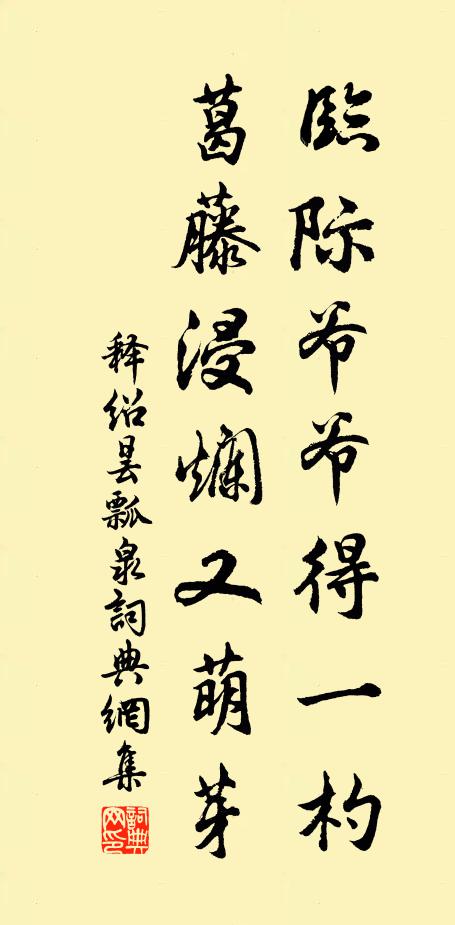 臨际爷爷得一杓
葛藤浸爛又萌芽
释绍昙瓢泉詞典網集
詞典网印